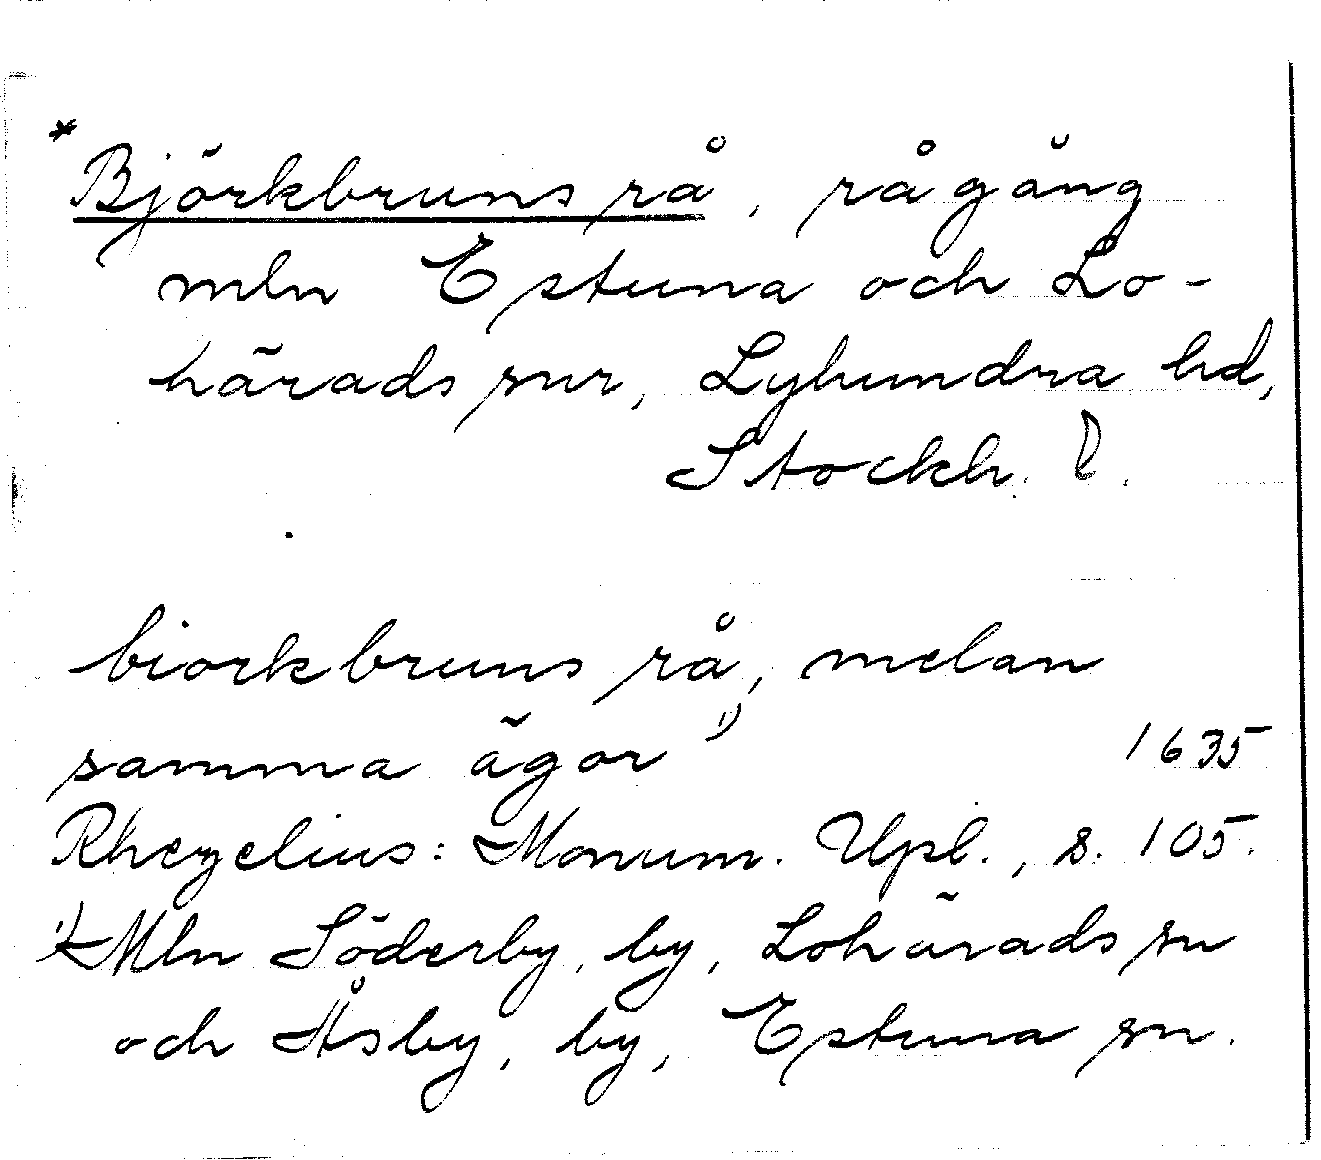 *Björkbruns rå, rågång
mln Estuna och Lo-
härads snr, Lyhundra hd,
Stockh. l.
biorkbruns rå, melan
samma ägor 1) 1635
Rhezelius: Monum. Upl., s. 105.
1) Mln Söderby, by, Lohärads sn
och Åsby, by, Estuna sn.